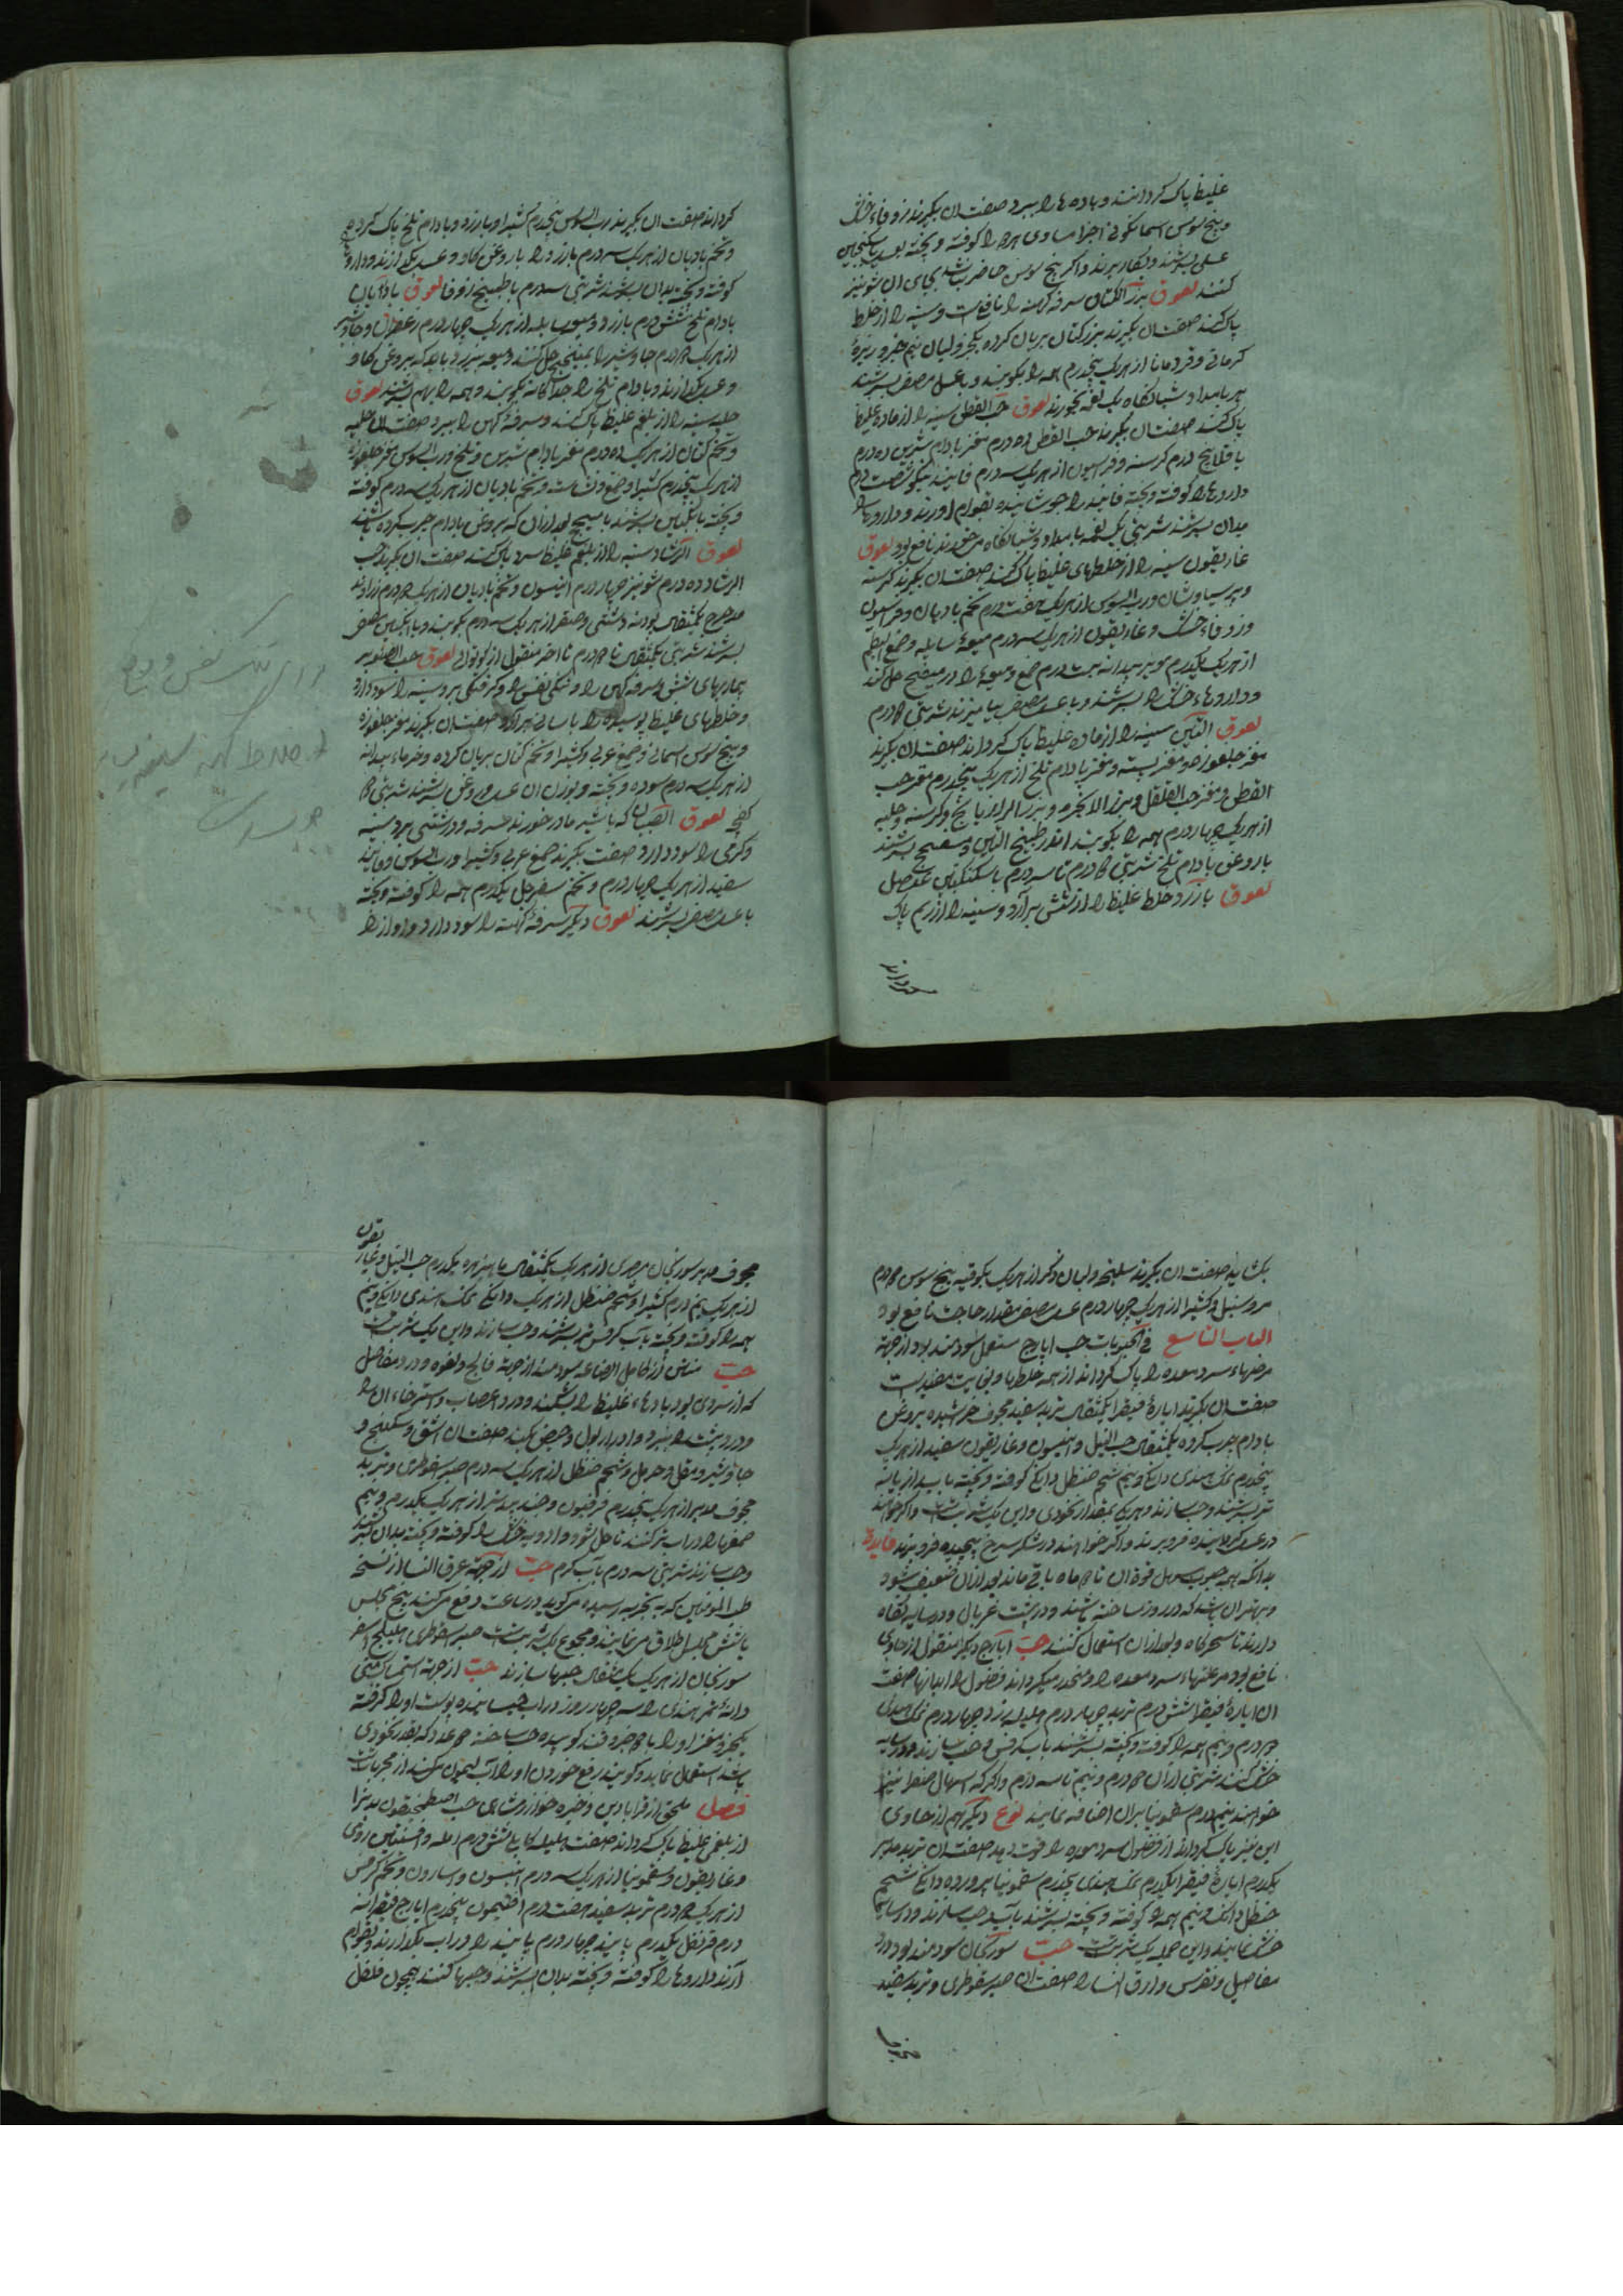 غلیظ پاک کرداند و بادها را ببرد صفت ان بکیرند زوفاء خشک
و بیخ سوسن اسمانکونی اجزا مساوی همه را کوفته و بیخته بعسل یا سکنجبین
عسلی بسرشند و بکار برند و اکر بیخ سوسن حاضر نباشد بجای ان شونیز
کنند لعوق بزر الکتان سرفه کهنه را نافع است و سینه را از خلط
پاک کند صفت ان بکیرند بزر کتان بریان کرده یکجزو لبان نیم جزو زیرهٔ
کرمانی و قردمانا از هریک پنجدرم همه را بکوبند و با عسل مصفی بسرشند
هر بامداد و شبانکاه یک لعقه بخورند لعوق حب القطن سینه را از ماده غلیظ
پاک کند صفت ان بکیرند حب القطن ده درم مغز بادام شیرین ده درم
باقلا پنج درم کرسنه و فراسیون از هریک سه درم فانیذ نیکو شصت درم
داروها را کوفته و بیخته فانیذ را جوشانیده بقوام اورند و داروها را
بدان بسرشند شربتی یک لعقه بامداد و شبانکاه می خورند نافع بود لعوق
غاریقون سینه را از خلطهای غلیظ پاک کند صفت ان بکیرند کرسنه
و پرسیاوشان و رب السوس از هریک هفت درم تخم بادیان و فراسیون
و زوفاء خشک و غاریقون از هریک سه درم میعهٔ سایله و صمغ البطم
از هریک یکدرم مویز بیدانه بیست درم صمغ و میعه را در میبختج حل کنند
و داروهاء خشک را بسرشند و با عسل مصفی بیامیزند شربتی ۲ درم
لعوق التین سینه را از ماده غلیظ پاک کرداند صفت ان بکیرند
مغز جلغوزه و مغز پسته و مغز بادام تلخ از هریک پنجدرم مغز حب
القطن و مغز حب الفلفل و بزر الانجره و بزر الرازیانج و کرسنه و حلبه
از هریک چهار درم همه را بکوبند اندر طبیخ التین و میبختج بسرشند
با روغن بادام تلخ شربتی ۲ درم تا سه درم با سکنکبین عنصل
لعوق بارزد خلط غلیظ را از شش برآرد و سینه را از ریم پاک
کرداند
کرداند صفت ان بکیرند رب السوس پنجدرم کثیرا و بارزد و بادام تلخ پاک کرده
و تخم بادیان از هریک سه درم بارزد را با روغن کاو و عسل بکدازند و داروها
کوفته و بیخته بدان بسرشند شربتی سه درم با طبیخ زوفا لعوق بادآبان
بادام تلخ شش درم بارزد و میعه سایله از هریک چهار درم زعفران و جاوشیر
از هریک ۲ درم جاوشیر را بمیبختج حل کنند و میعه و بارزد بروغن کاو
و عسل بکدازند و بادام تلخ را جداکانه بکوبند و همه را بهم بسرشند لعوق
حلبه سینه را از بلغم غلیظ پاک کند و سرفهٔ کهن را ببرد صفت ان حلبه
و تخم کتان از هریک ده درم مغز بادام شیرین و تلخ و رب السوس مغز جلغوزه
از هریک پنجدرم کثیرا و صمغ و نشاسته و تخم بادیان از هریک سه درم کوفته
و بیخته بانکبین بسرشند بعد ازان که بروغن بادام چرب کرده باشند
لعوق الرشاد سینه را از بلغم غلیظ سرد پاک کند صفت ان بکیرند حب
الرشاد ده درم شونیز چهار درم انیسون و تخم بادیان از هریک ۲ درم زراوند
مدحرج یکمثقال پودنه دشتی و صعتر از هریک سه درم بکوبند و با انکبین مصفی
بسرشند شربتی یکمثقال تا ۲ درم تا اخر منقول از لعوق حب الصنوبر
بیماریهای شش و سرفه کهن را و تنکی نفس را و کرفتکی بر و سینه را سود دارد
و خلطهای غلیظ پوسیده را باسانی برآرد صفت ان بکیرند مغز جلغوزه
و بیخ سوسن اسمانی و صمغ عربی و کثیرا و تخم کتان بریان کرده و خرماء بیدانه
از هریک سه درم سوده و بیخته و بوزن ان عسل و روغن بسرشند شربتی ۲
کفچه لعوق الصبیان که با شیر مادر خورند سرفه و درشتی بر و سینه
و کرمی را سود دارد صفت بکیرند صمغ عربی و کثیرا و رب السوس و فانیذ
سفید از هریک چهار درم و تخم سفرجل یکدرم همه را کوفته و بیخته
با عسل مصفی بسرشند لعوق دیکر سرفهٔ کهنه را سود دارد و اواز را
بکشاید صفت ان بکیرند سلیخه و لبان ذکر از هریک یکوقیه بیخ سوسن ۲ درم
مر و سنبل و کثیرا از هریک چهار درم عسل مصفی مقدار حاجت نافع بود
الباب التاسع فی الحبوبات حب ایارج مستعمل سودمند بود از جهة
مرضهاء سرد معده را پاک کرداند از همه خلطها و بغایت مفید است
صفت ان بکیرند ایارهٔ فیقرا یکمثقال تربد سفید مجوف خراشیده بروغن
بادام چرب کرده یکمثقال حب النیل و انیسون و غاریقون سفید از هریک
پنجدرم نمک هندی دانکی و نیم شحم حنظل دانکی کوفته و بیخته باب رازیانه
تر بسرشند و حب سازند و هریک بمقدار نخودی و این یک شربت است و اکر خواهند
در عسل کردانیده فرو برند و اکر خواهند در شکر سرخ پیچیده فرو برند فایدة
بدانکه همه حبوب مسهل قوة ان تا ۲ ماه باقی ماند بعد ازان ضعیف شود
و بهتر ان باشد که در روز ساخته باشند و در پشت غربال و در سایه نکاه
دارند تا سحرکاه و بعد ازان استعمال کنند حب ایارج دیکر منقول از حاوی
نافع بود مر علتهاء سرد معده را و منحدر میکرداند فضول را باسهال صفت
ان ایارهٔ فیقرا شش درم تربد چهار درم هلیله زرد چهار درم نمک هندی
۲ درم و نیم همه را کوفته و بیخته بسرشند باب کرفس و حب سازند و در سایه
خشک کنند شربتی ازان ۲ درم و نیم تا سه درم و اکر که اسهال صفرا نیز
خواهند نیم درم سقمونیا بران اضافه نمایند نوع دیکر هم از حاوی
این نیز پاک کرداند از فضول سرد معده را قوت دهد صفت ان تربد مدبر
یکدرم ایارهٔ فیقرا یکدرم نمک هندی پنجدرم سقمونیا پرورده دانکی شحم
حنظل دانک و نیم همه را کوفته و بیخته بسرشند باب حب سازند و در سایه
خشک نمایند و این جمله یک شربتست حب سورنجان سودمند بود درد
مفاصل و نقرس و عرق النسا را صفت ان صبر سقوطری و تربد سفید
مجوف
مجوف مدبر سورنجان مصری از هریک یکمثقال یکدرم حب النیل و غاریقون
از هریک نیم درم کثیرا و شحم حنظل از هریک دانکی نمک هندی دانکی و نیم
همه را کوفته و بیخته باب کرفس تر بسرشند و حب سازند و این یک شربت است
حب منتن از کامل الصناعه سودمند از جهة فالج و لقوه و درد مفاصل
که از سردی بود بادهاء غلیظ را بشکند و درد اعصاب و استرخاء ان را
و درد پشت را ببرد و ادرار بول و حیض کند صفت ان اشق و سکبینج و
جاوشیر و مقل و حرمل و شحم حنظل از هریک سه درم صبر سقوطری و تربد
مجوف مدبر از هریک پنجدرم فرفیون و جند بیدستر از هریک یکدرم و نیم
صمغها را در اب تر کنند تا حل شود و ادویه خشک را کوفته و بیخته بدان بسرشند
و حب سازند شربتی سه درم بآب کرم حب از جهة عرق النسا از نسخه
طب المومنین که به تجربه رسیده می کوید در ساعت دفع می کند پنج مجلس
یا شش مجلس اطلاق می نماید و مجموع یک شربتست صبر سقوطری هلیلج اصفر
سورنجان از هریک یک مثقال حبها سازند حب از جهة استمساک منی
دانهٔ تمر هندی را سه چهار روز در اب خیسانیده پوست او را کرفته
یکجزو مغز او را با ۲ جزو قند کوبیده حب ساخته ۲ عدد که بقدر نخودی
باشد استعمال نماید و کویند رفع خوردن او را آب لیمون میکند از مجربات
فصل ملحق از قرابادین ذخیره خوارزمشاهی حب اصطمخیقون بدنرا
از بلغم غلیظ پاک کرداند صفت هلیله کابلی شش درم امله و افسنتین رومی
و غاریقون و سقمونیا از هریک سه درم انیسون و اسارون و تخم کرفس
از هریک ۲ درم تربد سفید هفت درم افتیمون پنجدرم ایارج فیقرا نه
درم قرنفل یکدرم پانیذ چهار درم پانیذ را در اب بکدازند و بقوام
آرند و داروها را کوفته و بیخته بدان بسرشند و حبها کنند همچون فلفل